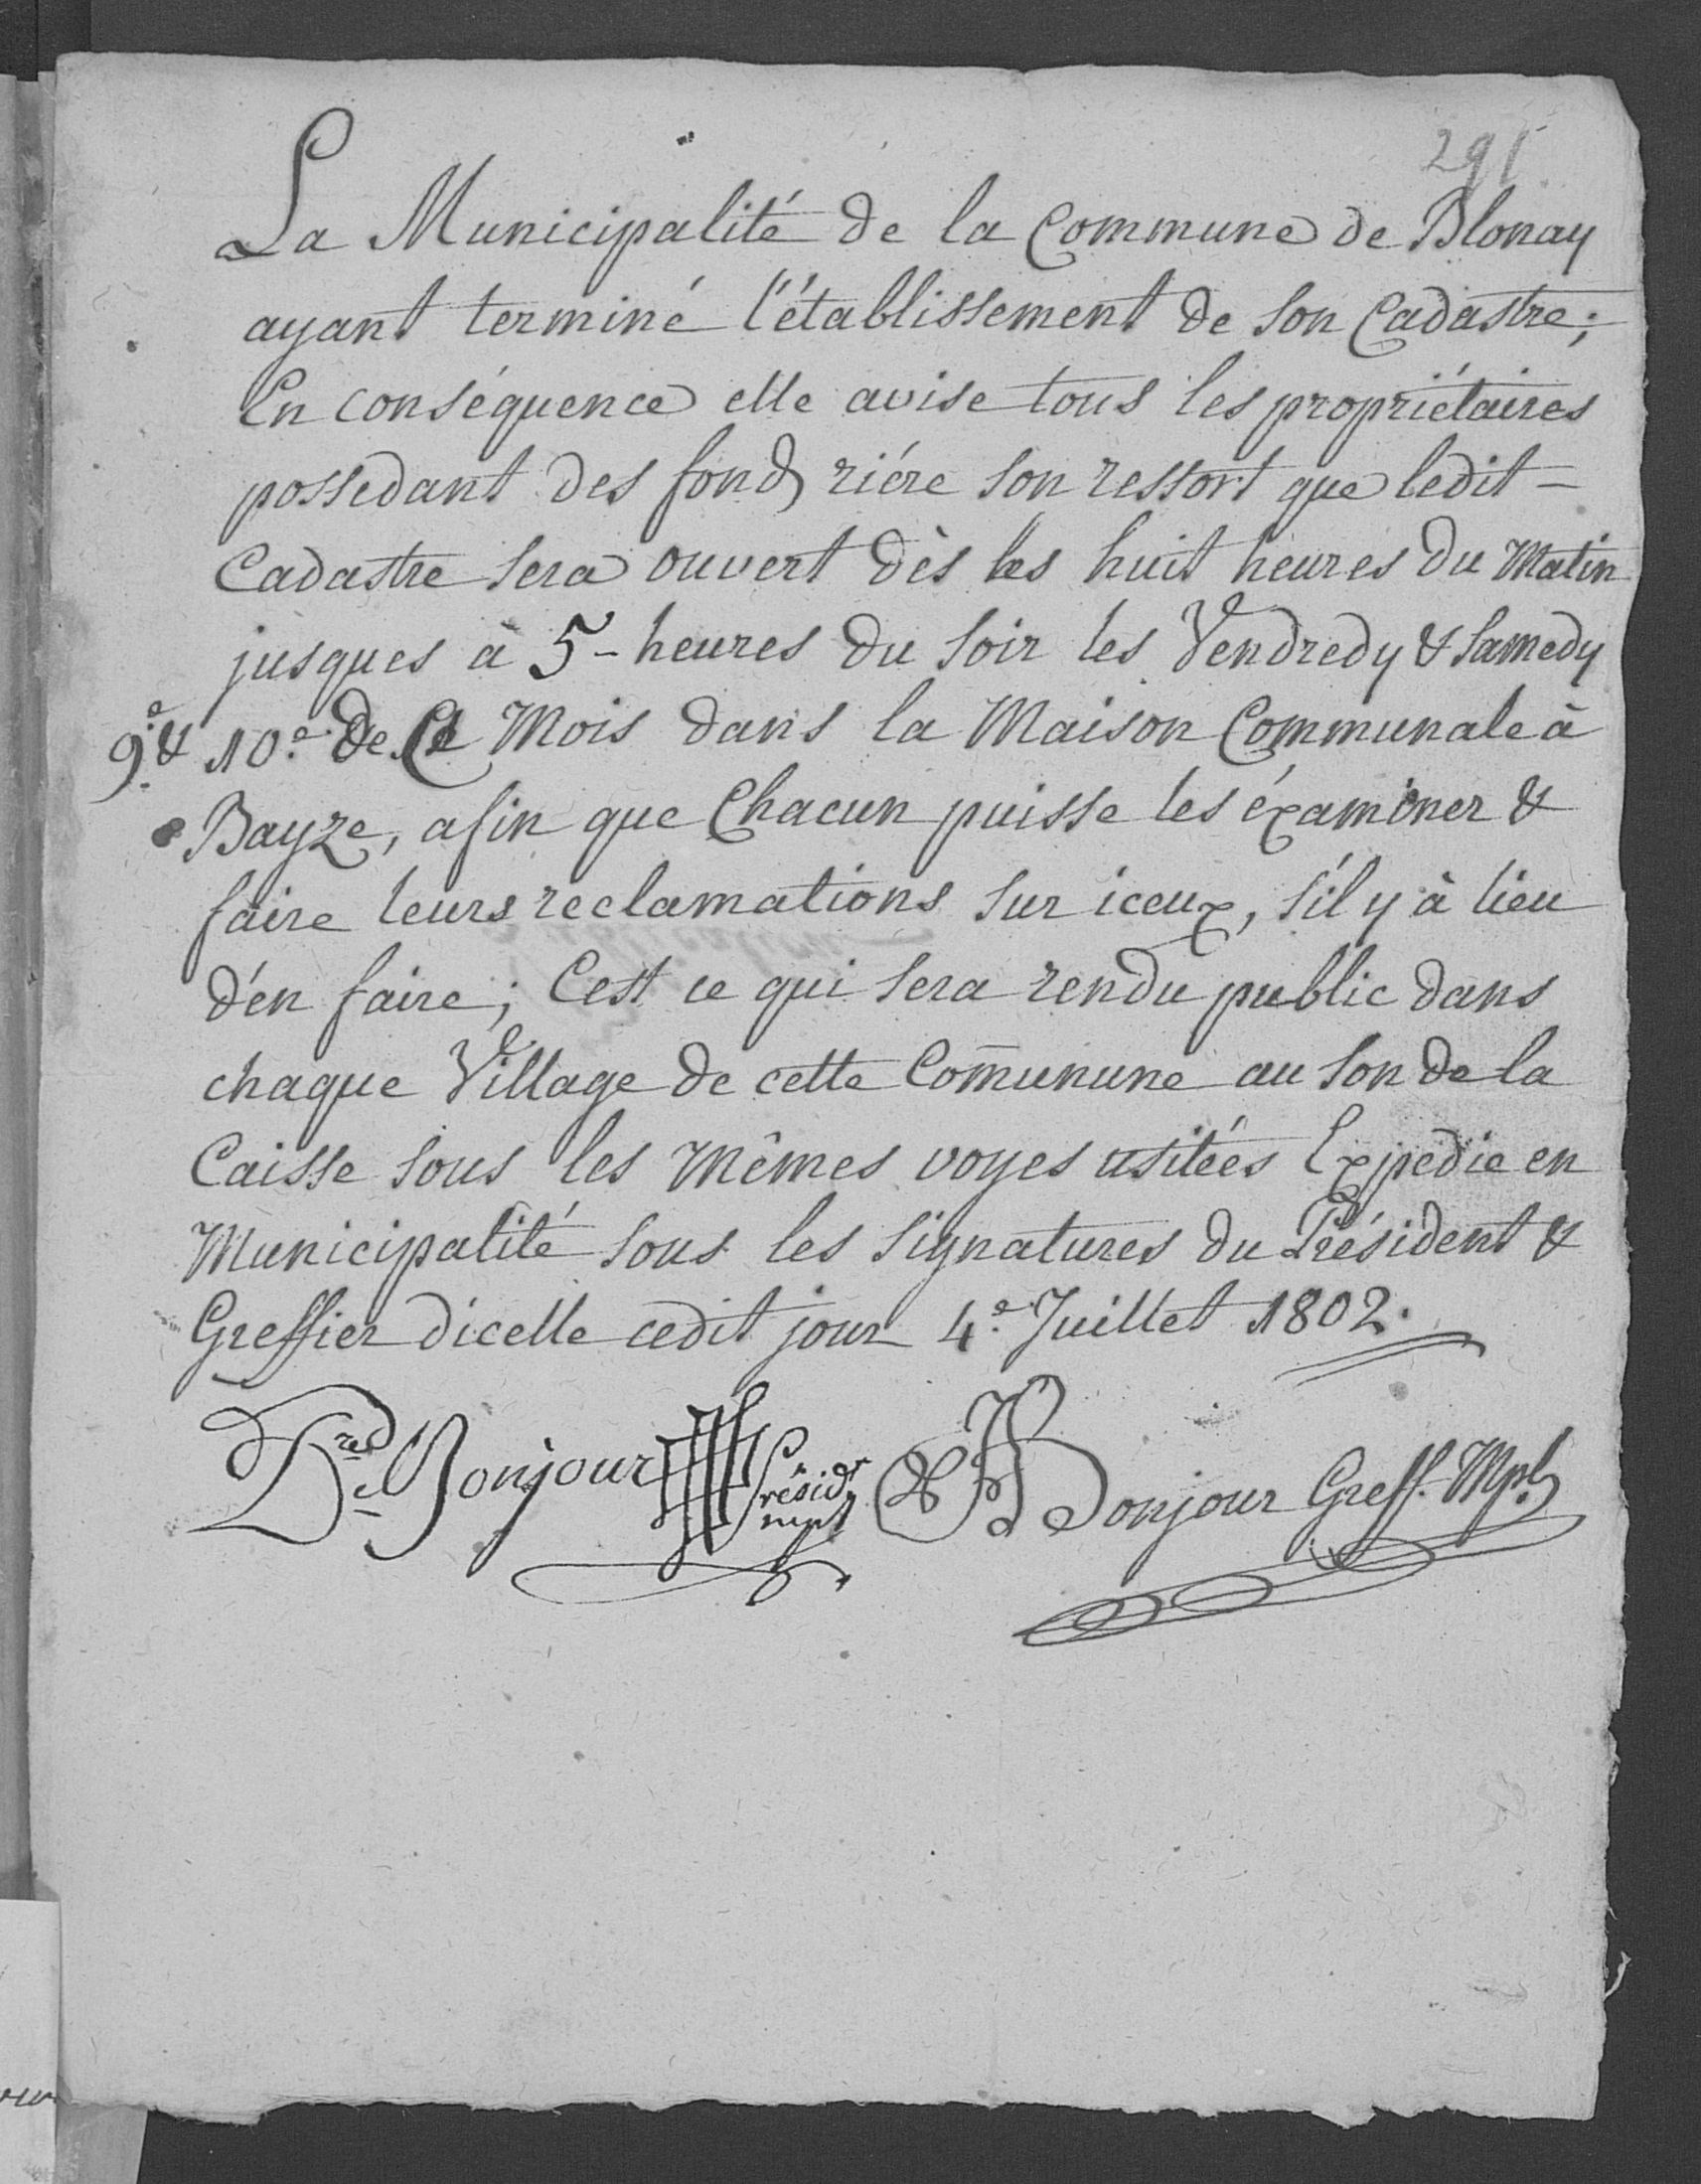 291
La Municipalité de la Commune de Blonay
ayant terminé l'établissement de son Cadastre;
En conséquence elle avise tous les propriétaires
possedant des fonds riére son ressort que ledit-
Cadastre sera ouvert dès les huit heures du Matin
jusques à 5-heures du soir les Vendredy & Samedy
9e & 10e de Ce Mois dans la Maison Communale à
Bayze, afin que Chacun puisse les éxaminer &
faire leurs reclamations sur iceux, s'il y à lieu
d'en faire; C'est ce qui sera rendu public dans
chaque Village de cette Com̄unune au son de la
Caisse sous les Mêmes voyes usitées Expedie en
Municipalité sous les signatures du Président &
Greffier d'icelle cedit jour 4e Juillet 1802.
Bonjour Présidt mpl
Bonjour Greff. Mpl